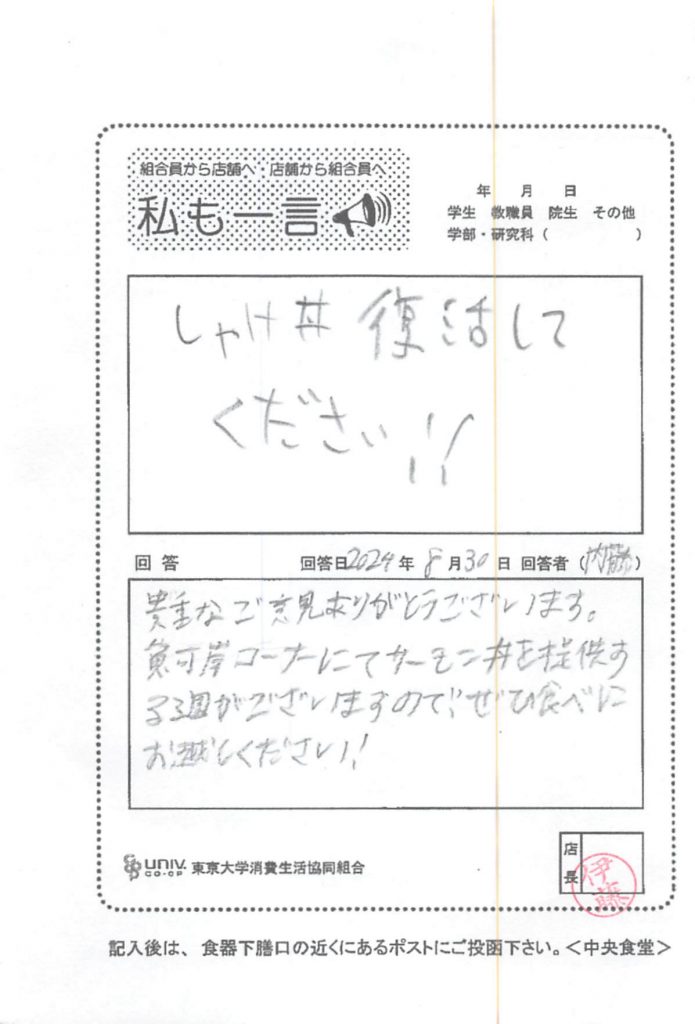 組合員から店舗へ・店舗から組合員へ
私も一言
年 月 日
学生 教職員 院生 その他
学部・研究科( )
しゃけ丼 復活して
ください!!
回答 回答日2024年 8月30日 回答者(内藤)
貴重なご意見ありがとうございます。
魚河岸コーナーにてサーモン丼を提供す
る週がございますので、ぜひ食べに
お越しください!
UNIV.
CO-OP
東京大学消費生活協同組合
店長
伊藤
記入後は、食器下膳口の近くにあるポストにご投函下さい。<中央食堂>